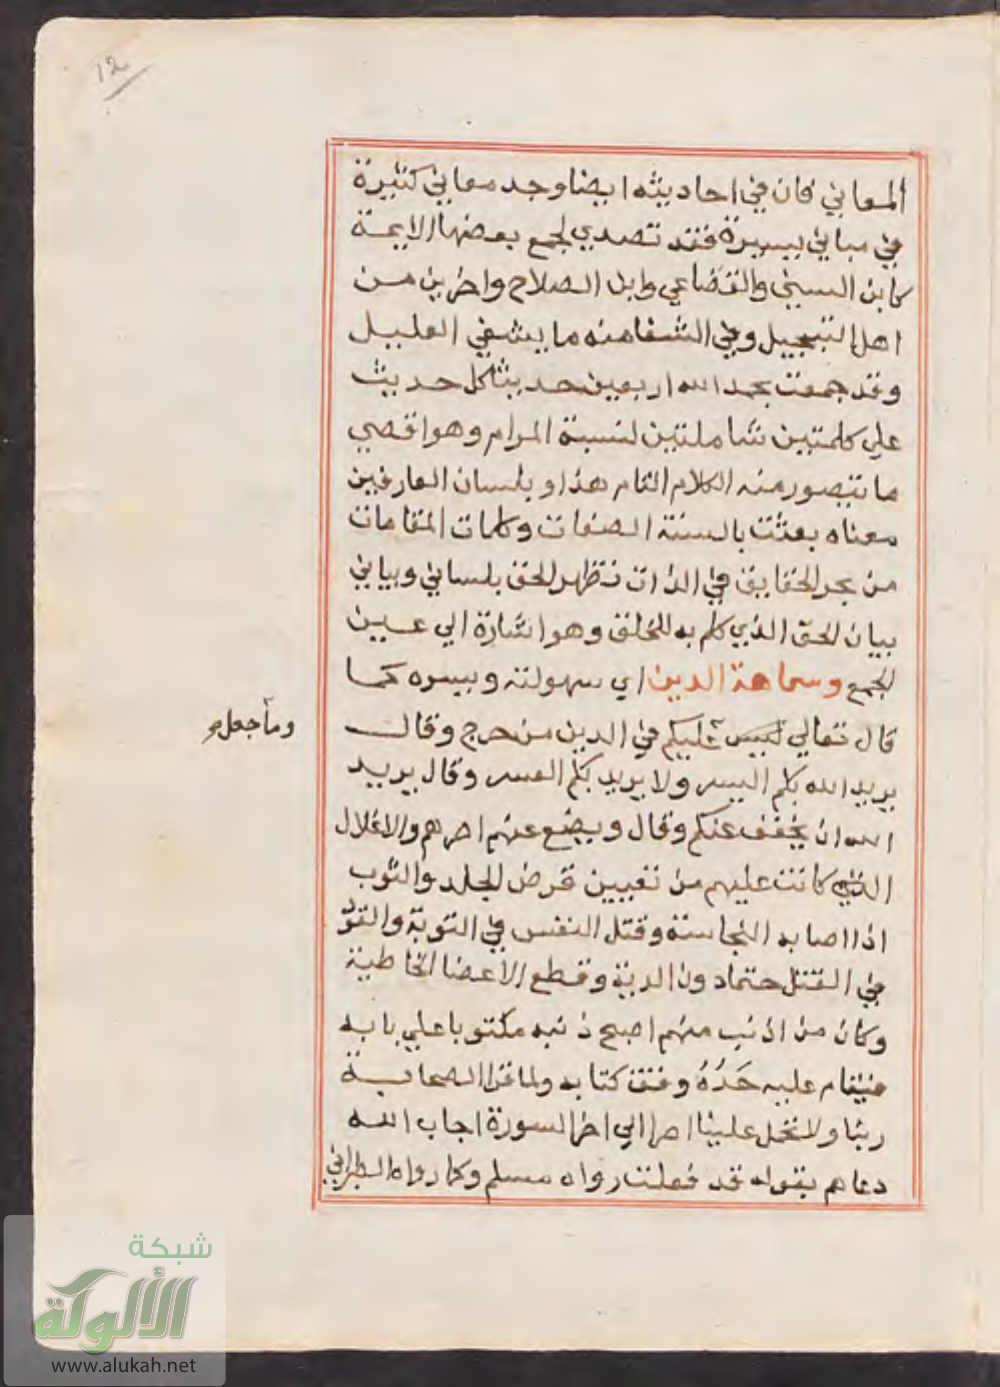 12
المعاني فان في احاديثه ايضا وجد معاني كثيرة
في مباني يسيرة فقد تصدي لجمع بعضها الايمة
كابن السني والقضاعي وابن الصلاح واخرين من
اهل التبجيل وفي الشفا منه ما يشفي العليل
وقد جمعت بحمد الله اربعين حديثا كل حديث
علي كلمتين شاملتين لنسبة المرام وهو اقصي
ما يتصور منه الكلام التام هذا وبلسان العارفين
معناه بعثت بالسنة الصفات وكلمات المقامات
من بحر الحقايق في الذات تظهر الحق بلساني وبياني
بيان الحق الذي كلم به للخلق وهو اشارة الي عين
الجمع وسماحة الدين اي سهولته ويسره كما
قال تعالي ليس عليكم في الدين من حرج وقال
وما جعل
يريد الله بكم اليسر ولا يريد بكم العسر وقال يريد
الله ان يخفف عنكم وقال ويضع عنهم اصرهم والاغلال
التي كانت عليهم من تعيين قرض الجلد والثوب
اذا اصابه النجاسة وقتل النفس في التوبة والقود
في القتل حتما دون الدية وقطع الاعضا الخاطية
وكان من اذنب منهم اصبح ذنبه مكتوبا علي بابه
فيقام عليه حَدُهُ وفق كتابه ولما قرا الصحابة
ربنا ولا تحمل علينا اصرا الي اخر السورة اجاب الله
دعاهم بقوله قد فعلت رواه مسلم وكما رواه الطبراني
شبكة
الألوكة
www.alukah.net